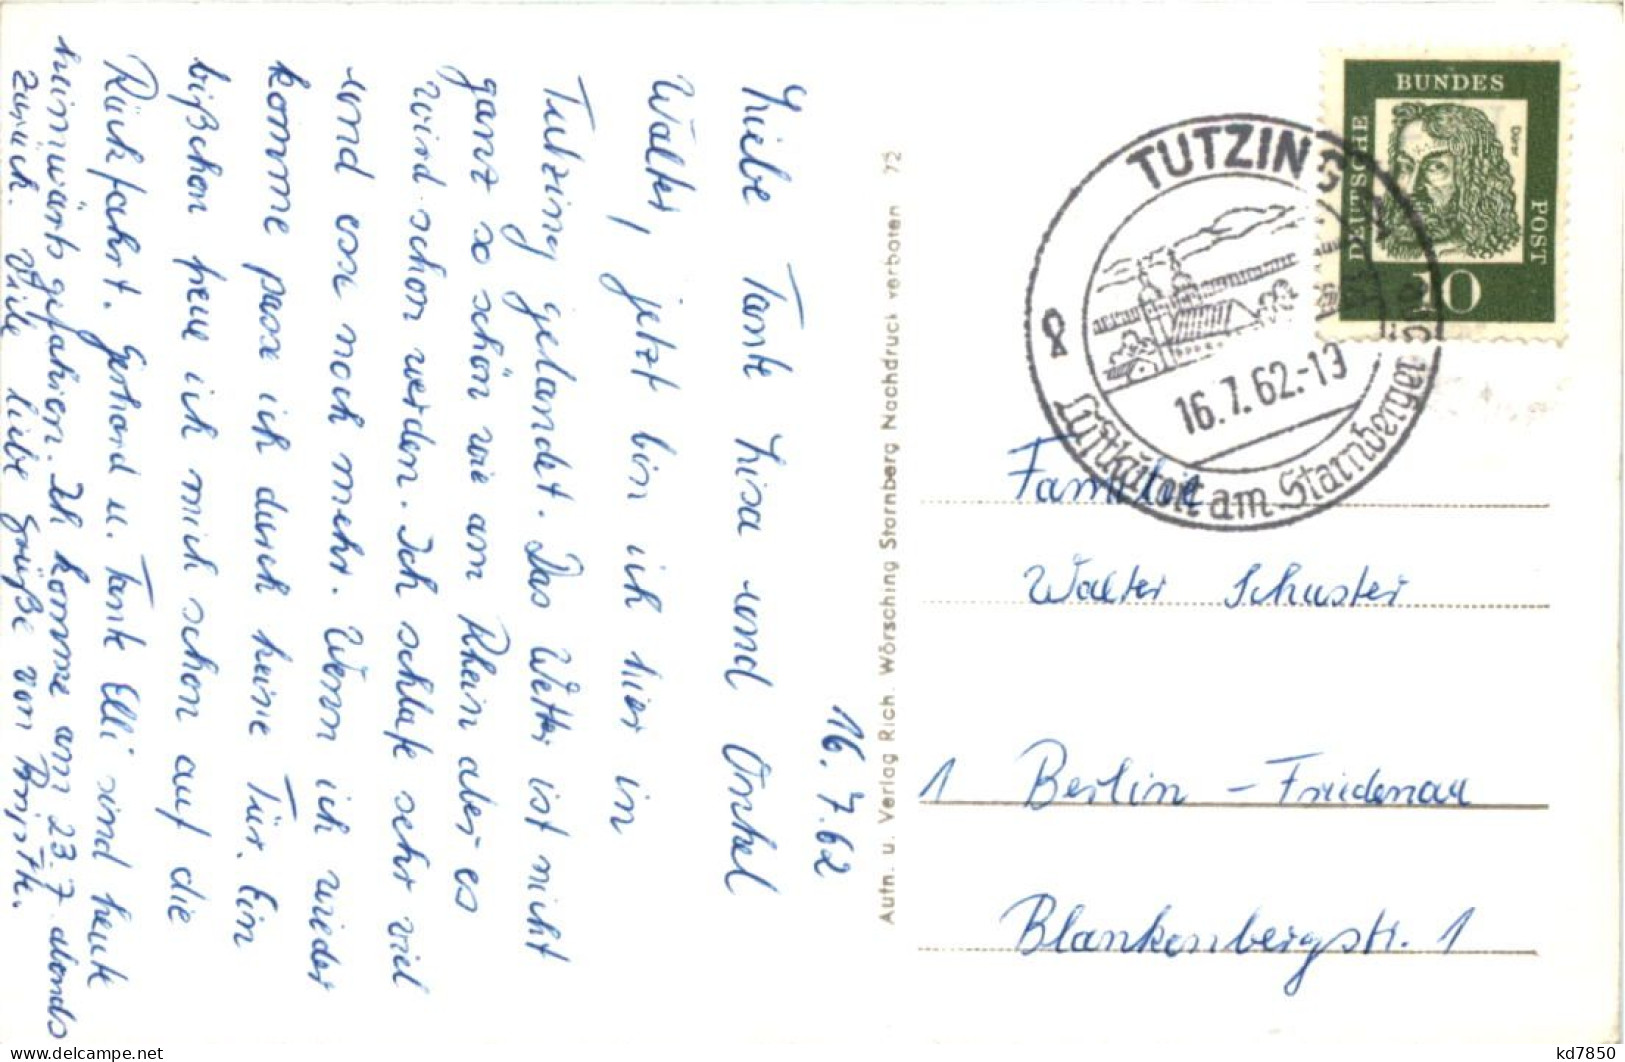 16.7.62
Liebe Tante Lisa und Onkel
Walter, jetzt bin ich hier in
Tutzing gelandet. Das Wetter ist nicht
ganz so schön wie am Rhein aber es
wird schon werden. Ich schlafe sehr viel
und ess noch mehr. Wenn ich wieder
komme pass ich durch keine Tür. Ein
bißchen freue ich mich schon auf die
Rückfahrt. Gerhard u. Tante Elli sind heute
heimwärts gefahren. Ich komme am 23.7 abends
zurück. Viele liebe Grüße von
Autn. u. Verlag Rich. Wörsching Starnberg Nachdruck verboten 72
TUTZING
16.7.62.-13
Luftkurort am Starnberger
DEUTSCHE
BUNDES
POST
Dürer
10
Familie
Walter Schuster
1 Berlin - Friedenau
Blankenbergstr. 1
kd7850